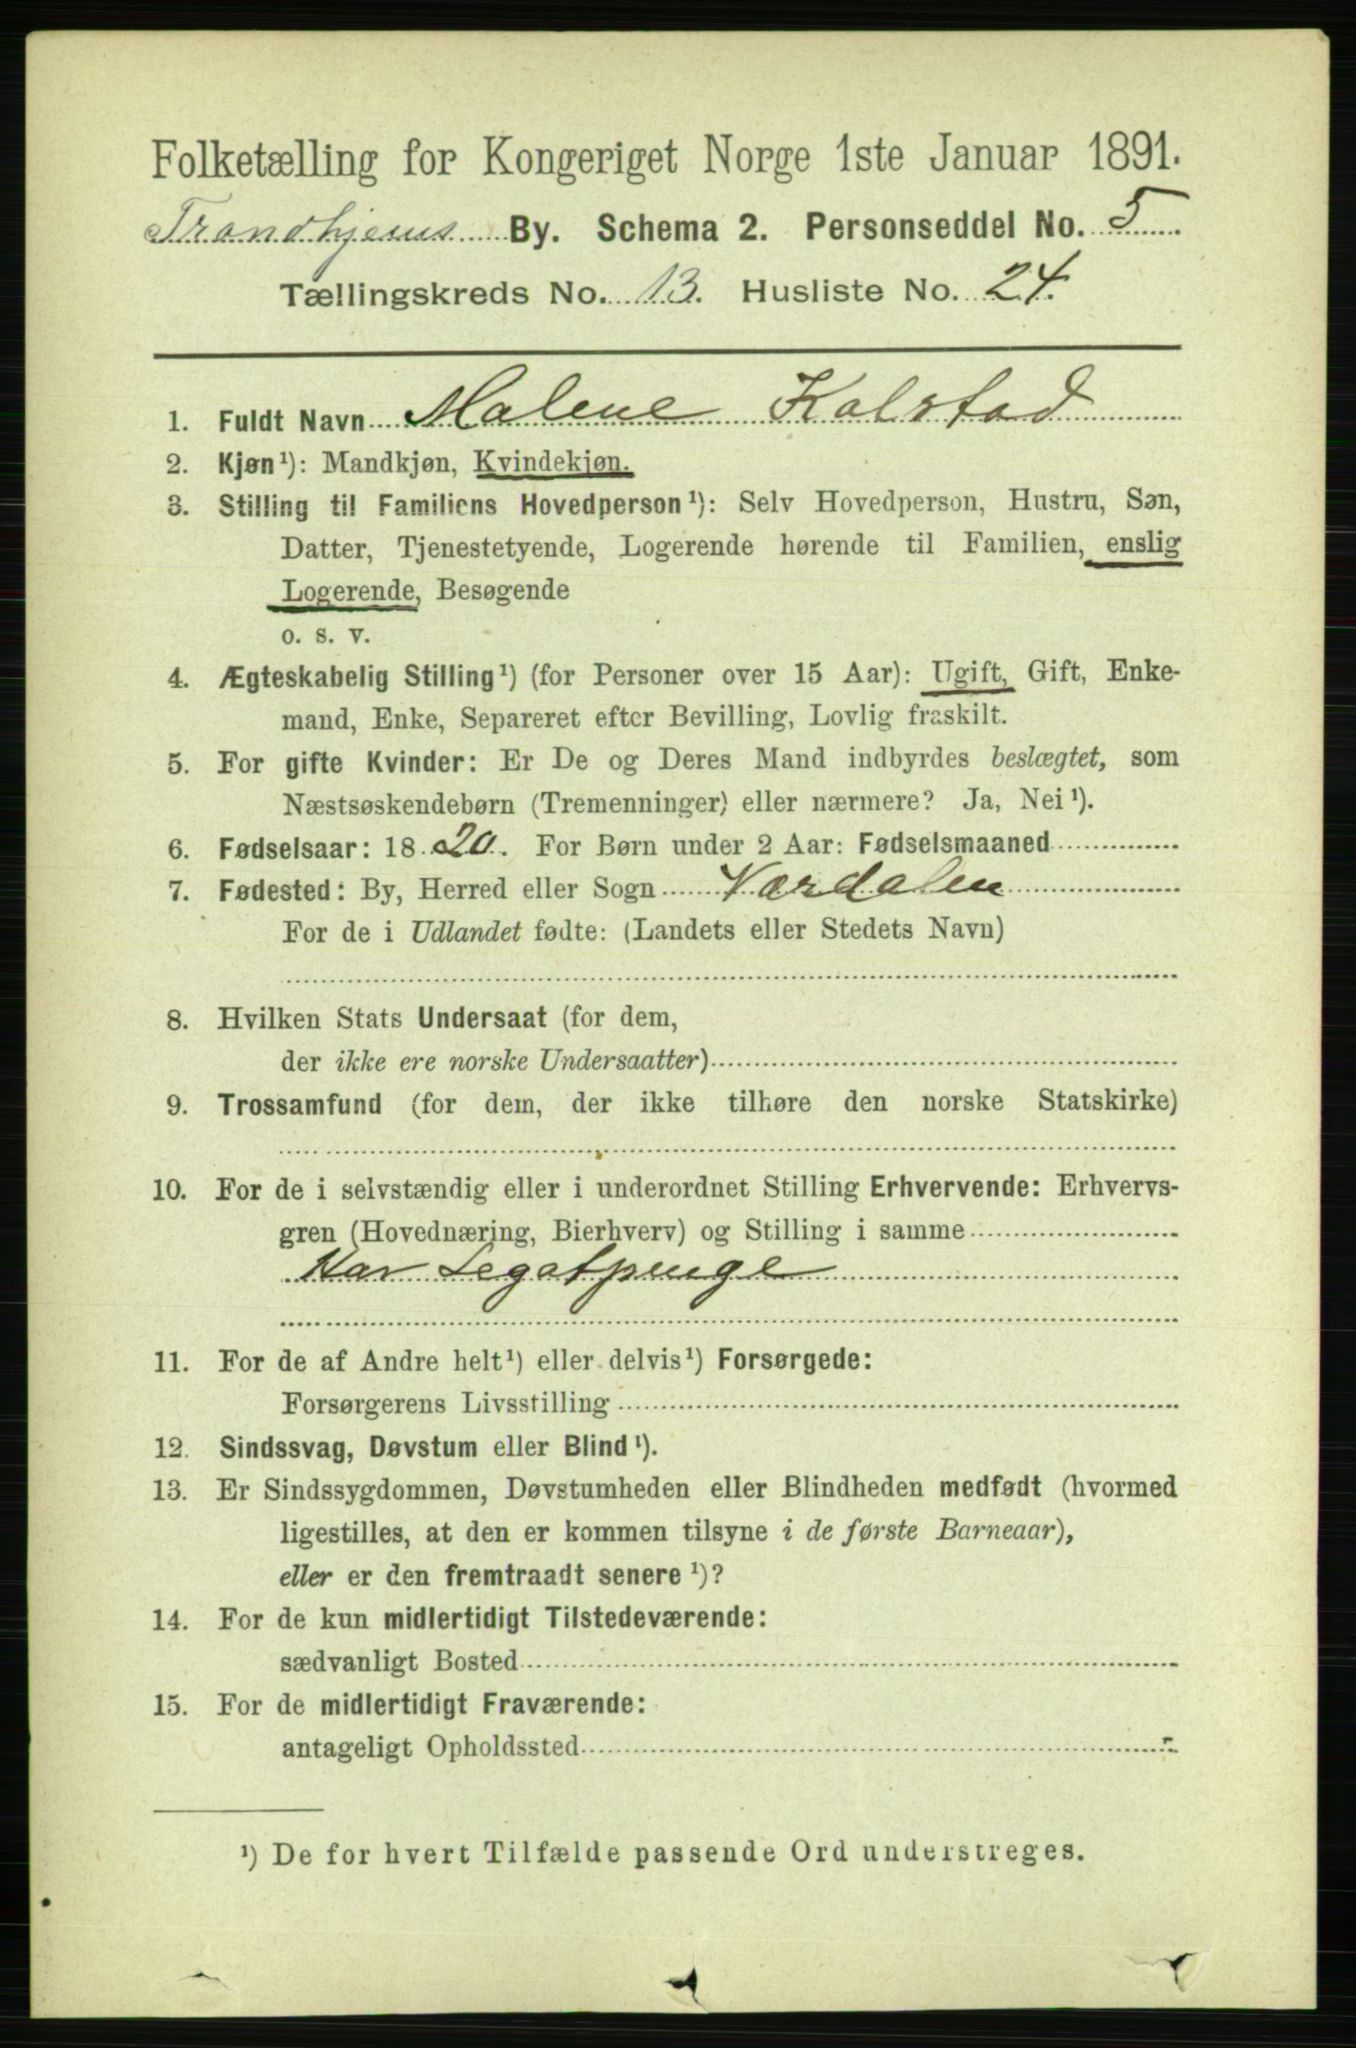 Folketælling for Kongeriget Norge 1ste Januar 1891.
Trondhjems By. Schema 2. Personseddel No. 5
Tællingskreds No. 13. Husliste No. 24.
1. Fuldt Navn Malene Kolstad
2. Kjøn¹): Mandkjøn, Kvindekjøn.
3. Stilling til Familiens Hovedperson¹): Selv Hovedperson, Hustru, Søn,
Datter, Tjenestetyende, Logerende hørende til Familien, enslig
Logerende, Besøgende
o. s. v.
4. Ægteskabelig Stilling¹) (for Personer over 15 Aar): Ugift, Gift, Enke-
mand, Enke, Separeret efter Bevilling, Lovlig fraskilt.
5. For gifte Kvinder: Er De og Deres Mand indbyrdes beslægtet, som
Næstsøskendebørn (Tremenninger) eller nærmere? Ja, Nei¹).
6. Fødselsaar: 1820. For Børn under 2 Aar: Fødselsmaaned
7. Fødested: By, Herred eller Sogn Værdalen
For de i Udlandet fødte: (Landets eller Stedets Navn)
8. Hvilken Stats Undersaat (for dem,
der ikke ere norske Undersaatter)
9. Trossamfund (for dem, der ikke tilhøre den norske Statskirke)
10. For de i selvstændig eller i underordnet Stilling Erhvervende: Erhvervs-
gren (Hovednæring, Bierhverv) og Stilling i samme
Har Legatpenge
11. For de af Andre helt¹) eller delvis¹) Forsørgede:
Forsørgerens Livsstilling
12. Sindssvag, Døvstum eller Blind¹).
13. Er Sindssygdommen, Døvstumheden eller Blindheden medfødt (hvormed
ligestilles, at den er kommen tilsyne i de første Barneaar),
eller er den fremtraadt senere¹)?
14. For de kun midlertidigt Tilstedeværende:
sædvanligt Bosted
15. For de midlertidigt Fraværende:
antageligt Opholdssted
¹) De for hvert Tilfælde passende Ord understreges.